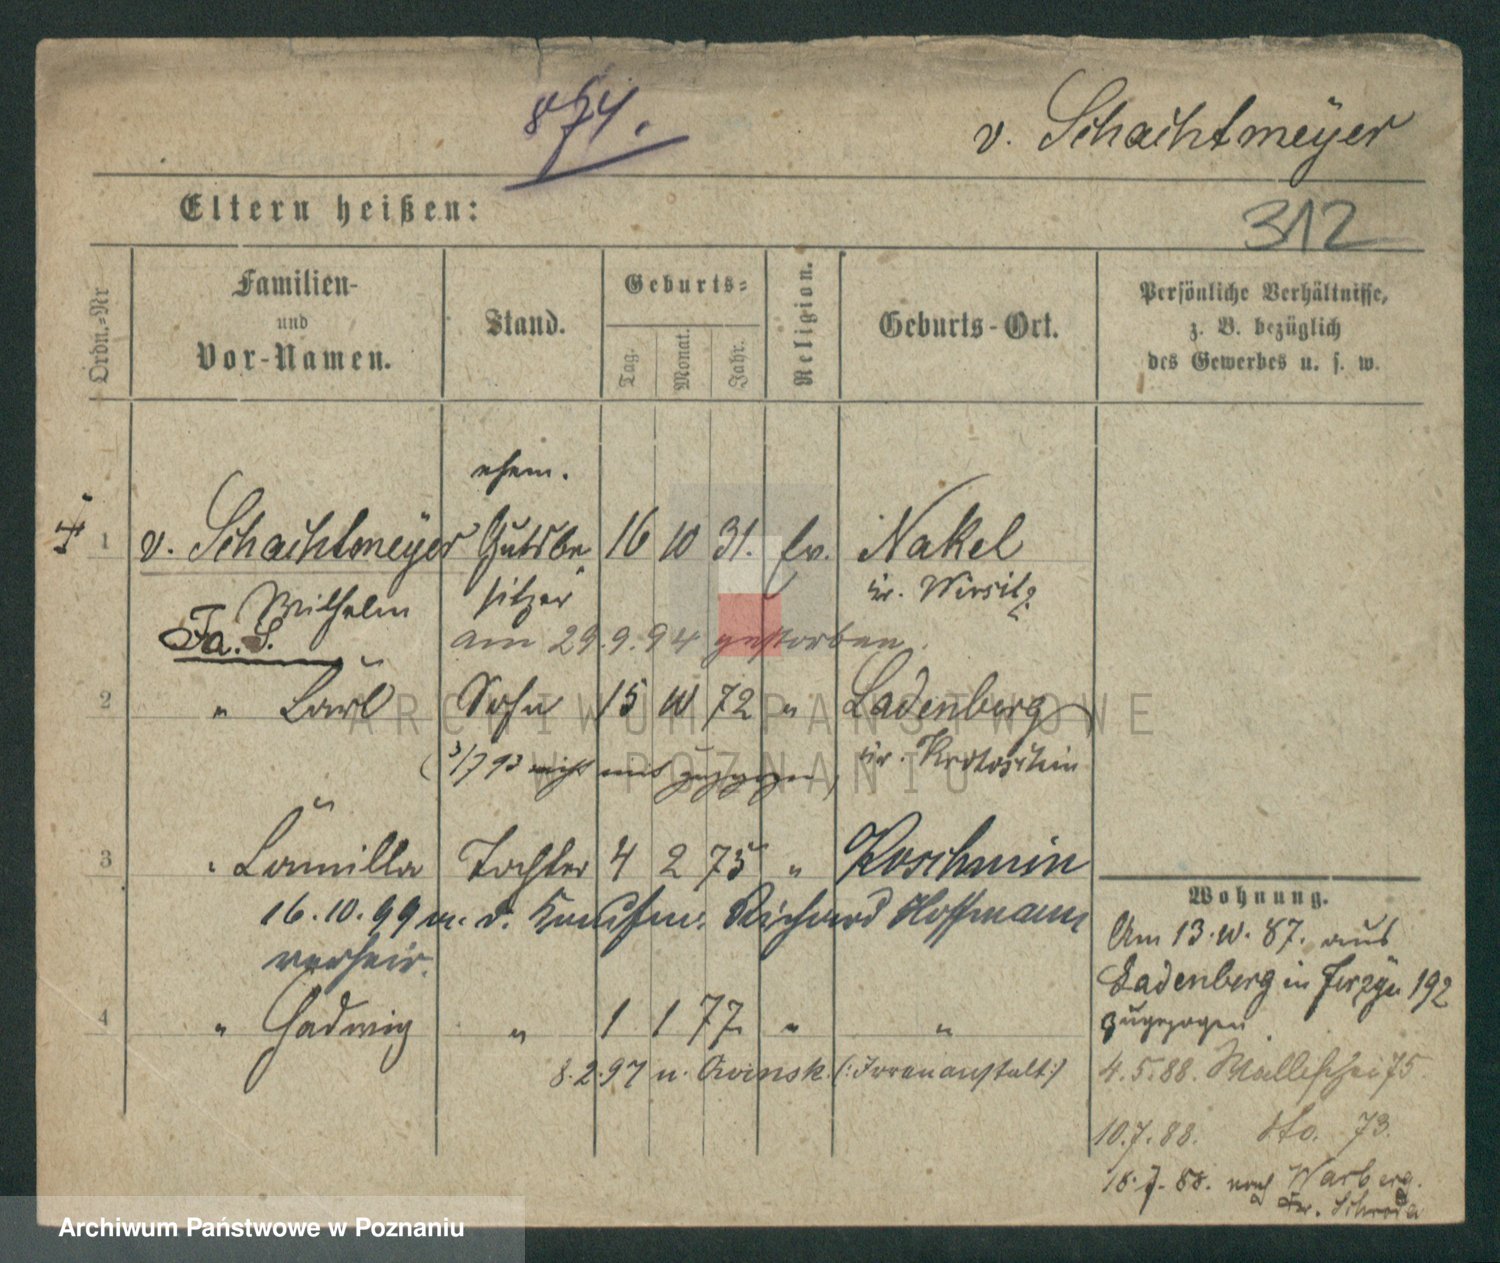 874.
v. Schachtmeÿer
Eltern heißen:
312
Ordn.-Nr
Familien-
und
Vor-Namen.
Stand.
Geburts-
Tag.
Monat.
Jahr.
Religion.
Geburts-Ort.
Persönliche Verhältnisse,
z. B. bezüglich
des Gewerbes u. s. w.
ehem.
1 v. Schachtmeÿer Gutsbe 16 10 31. ev. Nakel
Wilhelm sitzer Kr. Wirsitz
Fa. S.
am 29.9.94 gestorben.
2 " Carl Sohn 15 10 72 " Ladenberg
(3/7 93 nicht mit zugezogen) Kr. Krotoschin
3 " Camilla Tochter 4 2 75 " Koschmin
16.10.99 m. d. Kaufm. Richard Hoffmann
verheir.
4 " Hedwig " 1 1 77 " "
8.2.97 n. Owinsk. (: Irrenanstalt :)
Wohnung.
Am 13. 10. 87. aus
Ladenberg in Jerzÿce 192
zugezogen
4.5.88. Wallischei 75
10.7.88. dto. 73.
18.7.88. nach Warberg.
Kr. Schroda